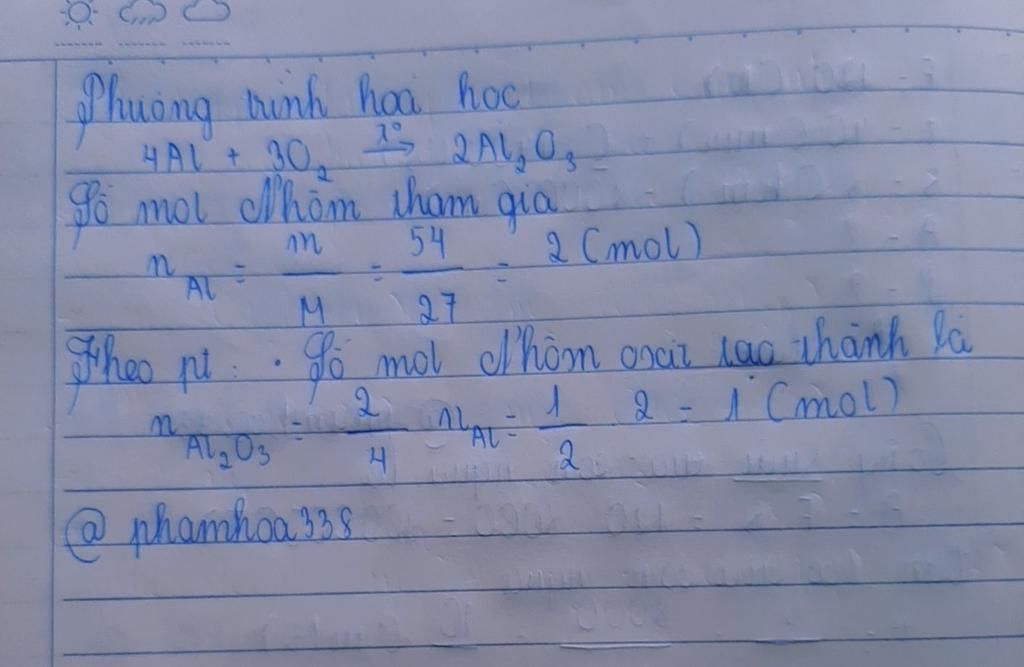 Phương trình hoá học
4Al + 3O₂ →(t°) 2Al₂O₃
Số mol Nhôm tham gia
n_Al = m/M = 54/27 = 2 (mol)
Theo pt : · Số mol Nhôm oxit tạo thành là
n_Al₂O₃ = 2/4 n_Al = 1/2 2 = 1 (mol)
@ phamhoa338